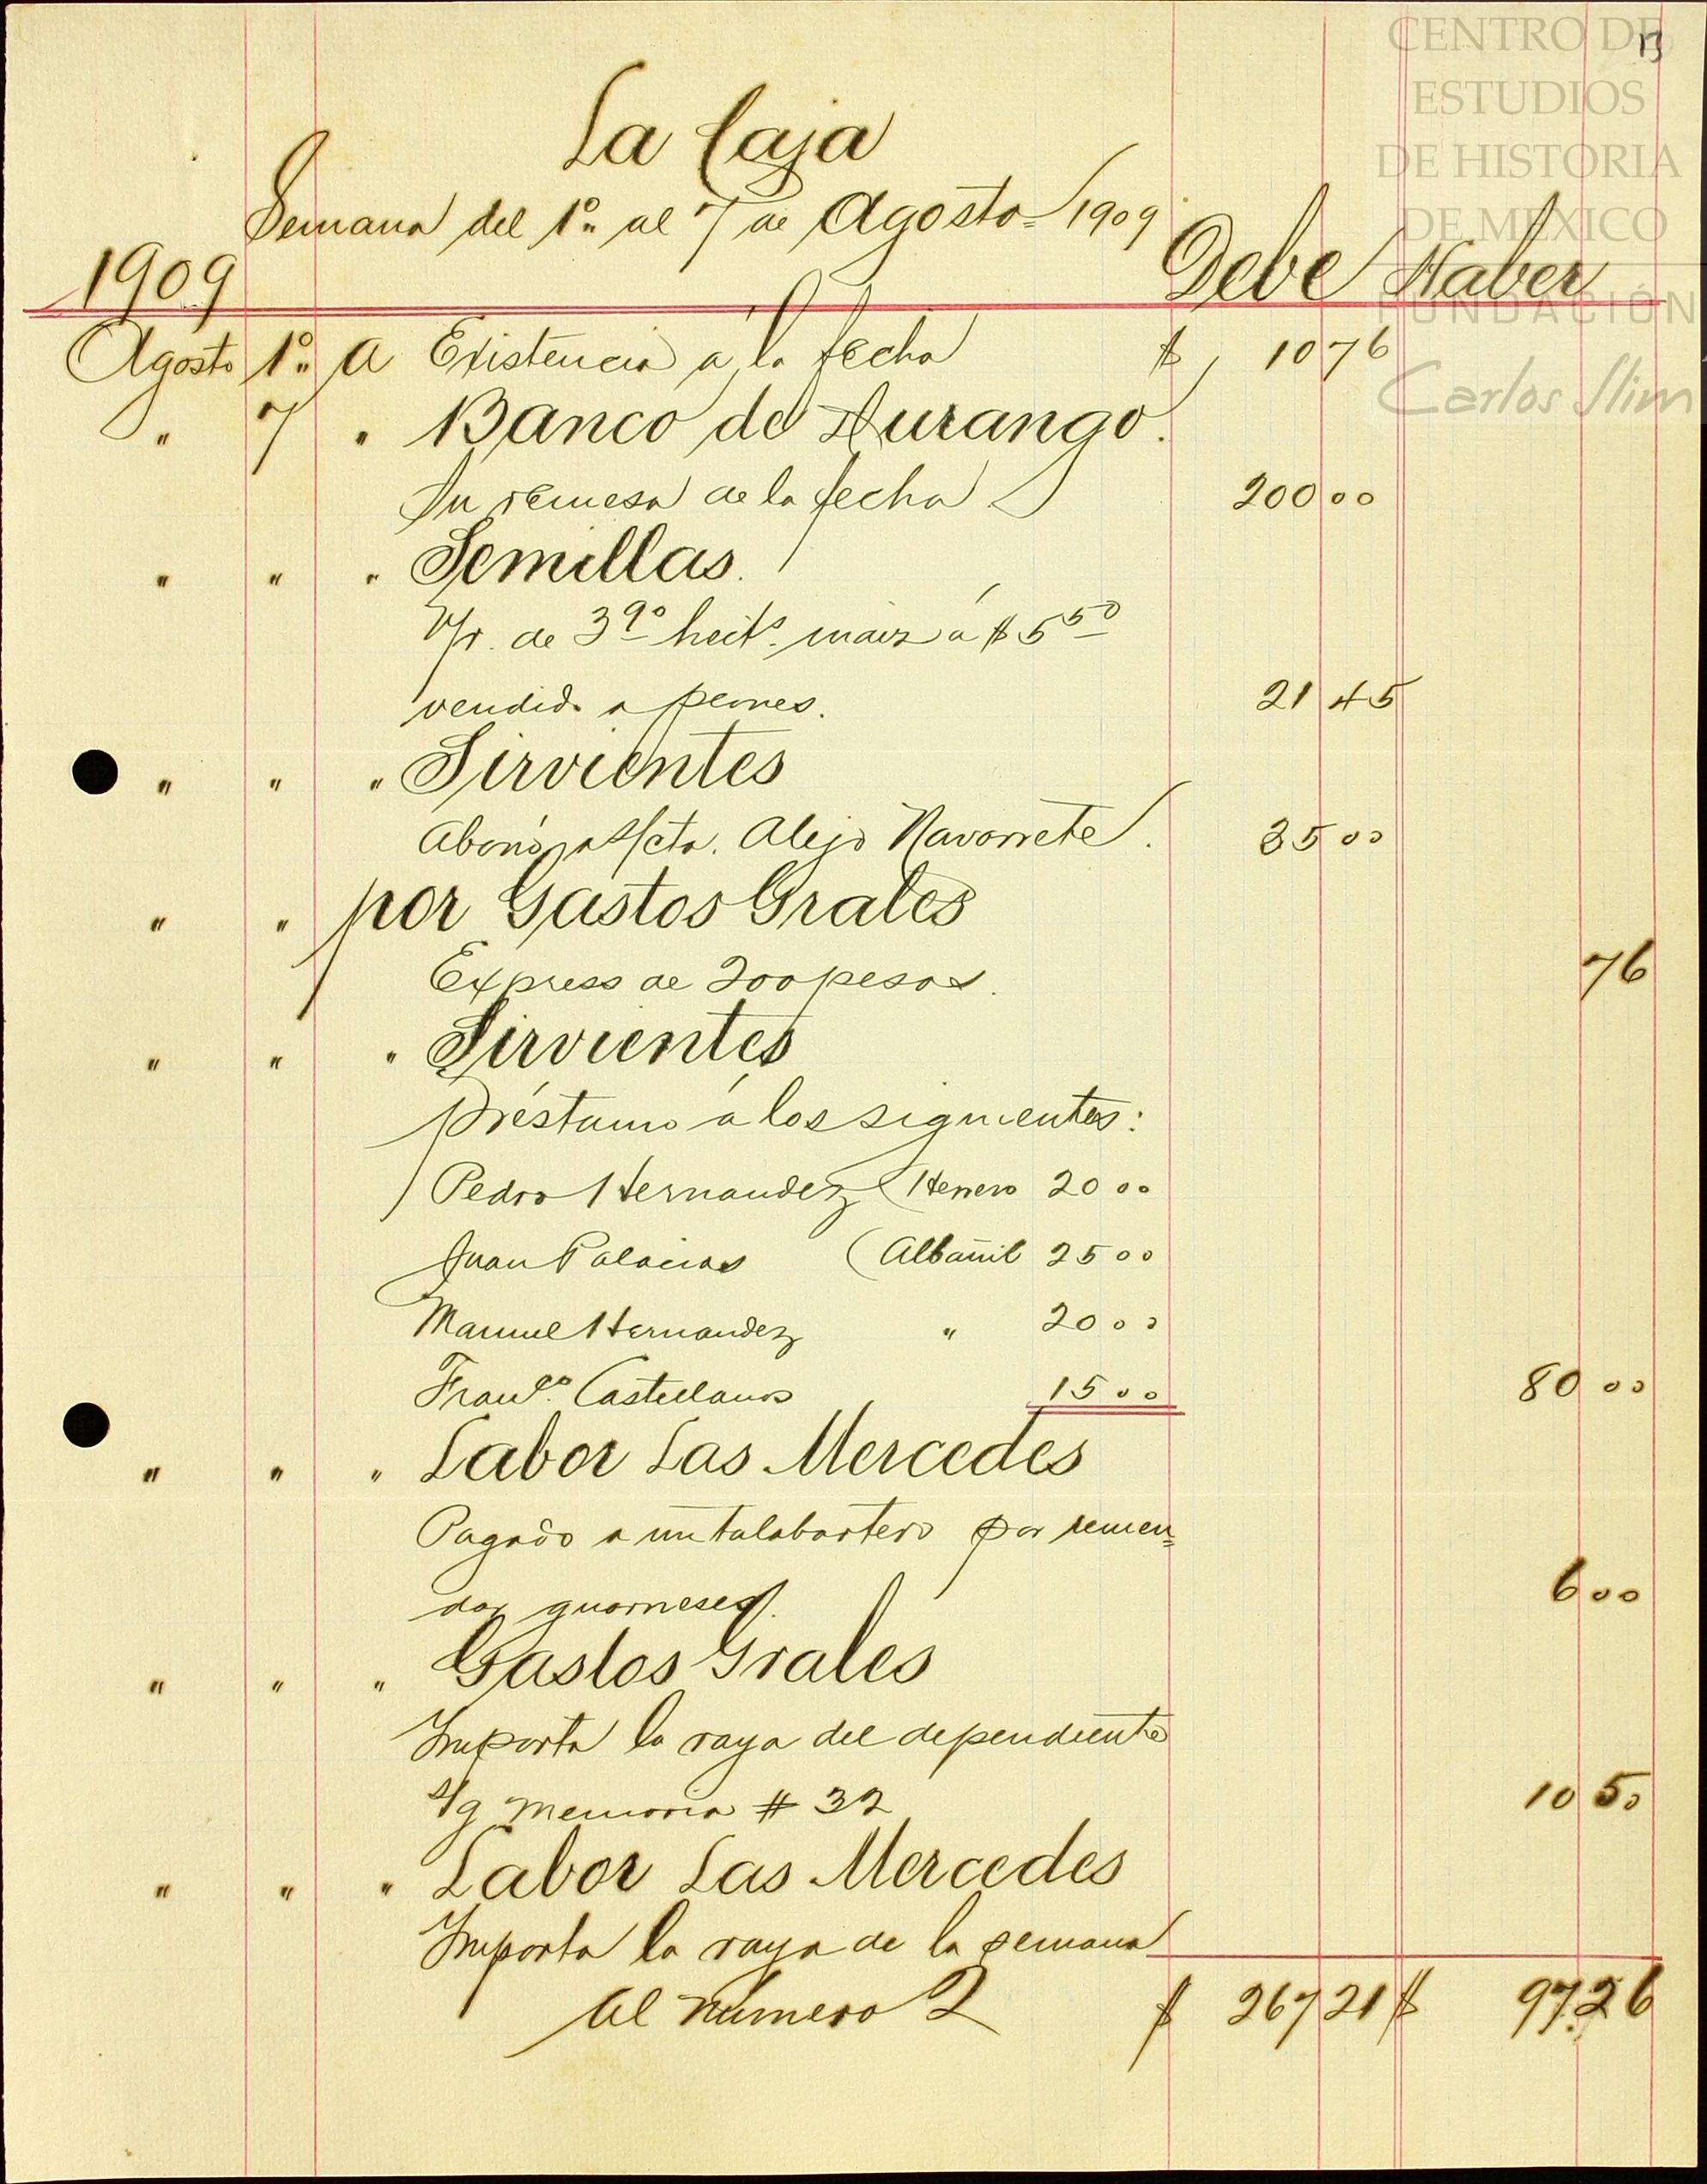 CENTRO DE
ESTUDIOS
DE HISTORIA
DE MÉXICO
FUNDACIÓN
Carlos Slim
13
La Caja
Semana del 1º al 7 de Agosto 1909
1909 Debe Haber
Agosto 1º A Existencia á la fecha $ 10 76
" 7 " Banco de Durango.
Su remesa de la fecha 200 00
" " " Semillas.
V/r. de 3 90 hects. maiz á $ 5 50
vendido a peones. 21 45
" " " Sirvientes
Abonó a s/cta. Alejo Navarrete. 35 00
" " por Gastos Grales
Express de 200 pesos. 76
" " " Sirvientes
Préstamo á los siguientes:
Pedro Hernandez (Herrero 20 00
Juan Palacios (Albañil 25 00
Manuel Hernandez " 20 00
Franco. Castellanos 15 00 80 00
" " " Labor Las Mercedes
Pagado a un talabartero por remen=
dar guarneses. 6 00
" " " Gastos Grales
Importa la raya del dependiente
s/g memoria # 32 10 50
" " " Labor Las Mercedes
Importa la raya de la semana
Al número 2 $ 267 21 $ 97.26